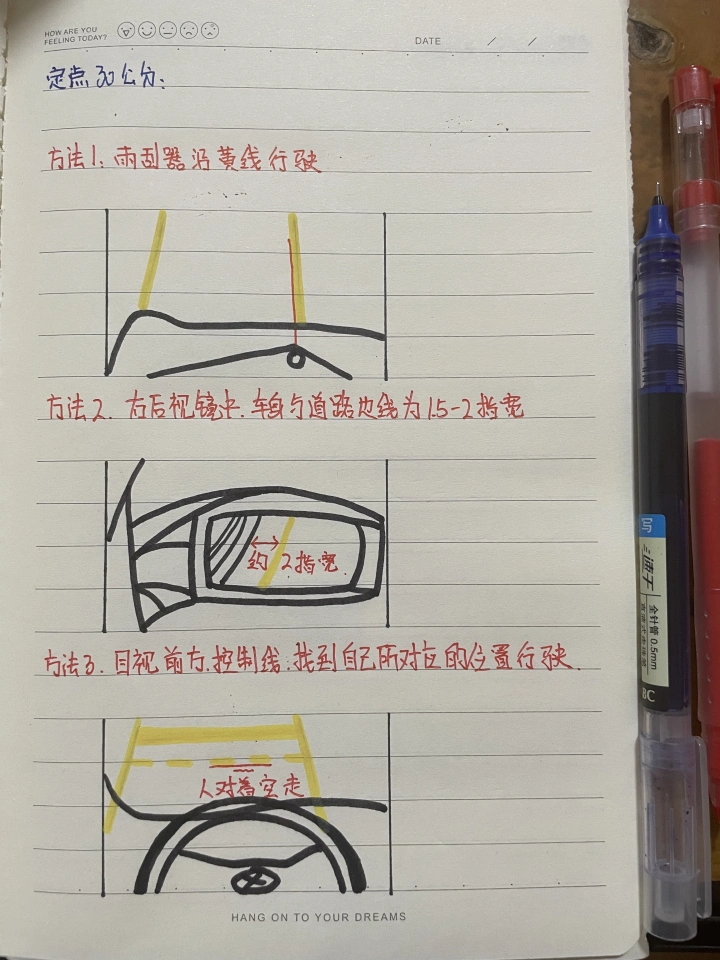 HOW ARE YOU
FEELING TODAY?
DATE / /
定点30公分:
方法1. 雨刮器沿黄线行驶
方法2. 右后视镜中.车身与道路边线为1.5-2指宽
约2指宽
方法3. 目视前方.控制线.找到自己所对应的位置行驶.
人对着空走
HANG ON TO YOUR DREAMS
写
速干
全针管 0.5mm
BC